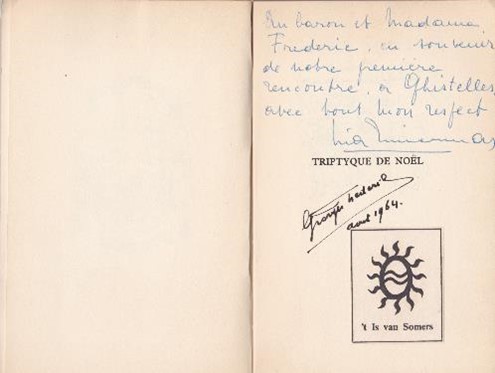 Au baron et Madame
Frederic, en souvenir
de notre première
rencontre, à Ghistelles,
avec tout mon respect
TRIPTYQUE DE NOËL
Georges
avril 1964.
't Is van Somers